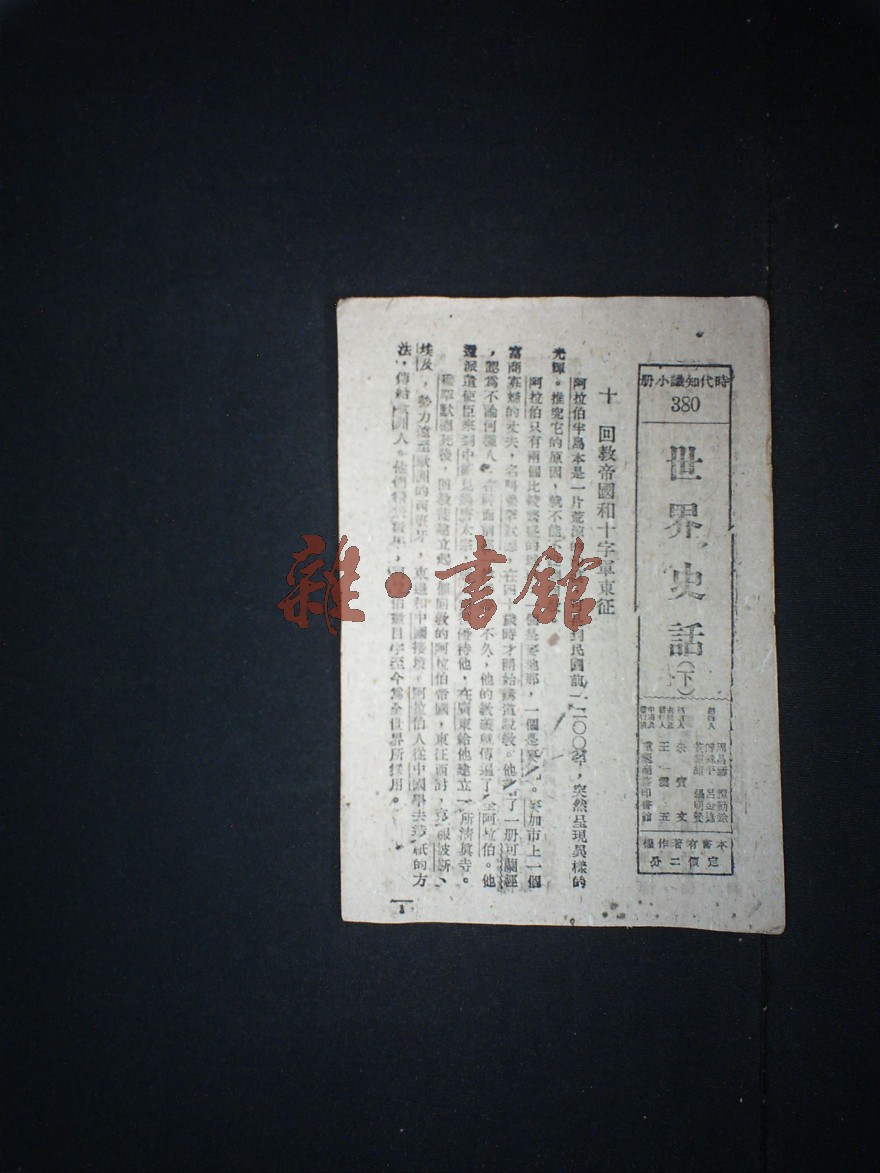 時代知識小册
380
世界史話(下)
朱賓文
王雲五
重慶商務印書館
本書有著作權
定價二分
十 回教帝國和十字軍東征
阿拉伯半島本是一片荒涼的
到民國前一二〇〇年,突然呈現異樣的
光輝。推究它的原因,就不能不
阿拉伯只有兩個比較繁盛的
一個是麥地那,一個是麥加。麥加市上一個
富商寡婦的丈夫,名叫穆罕默德,在四十歲時才開始傳道說教。他
了一册可蘭經
,認爲不論何種人,在
面前
不久,他的教義就傳遍了全阿拉伯。他
還派遣使臣來到中國見
太宗,
優待他,在廣東給他建立一所清眞寺。
穆罕默德死後,回教徒建立起一個回教的阿拉伯帝國,東征西討,
服波斯、
埃及,勢力遠至歐洲的西班牙,東邊和中國接境。阿拉伯人從中國學去
紙的方
法,傳給歐洲人。他們
阿拉伯數目字至今爲全世界所採用。
1
雜·書館